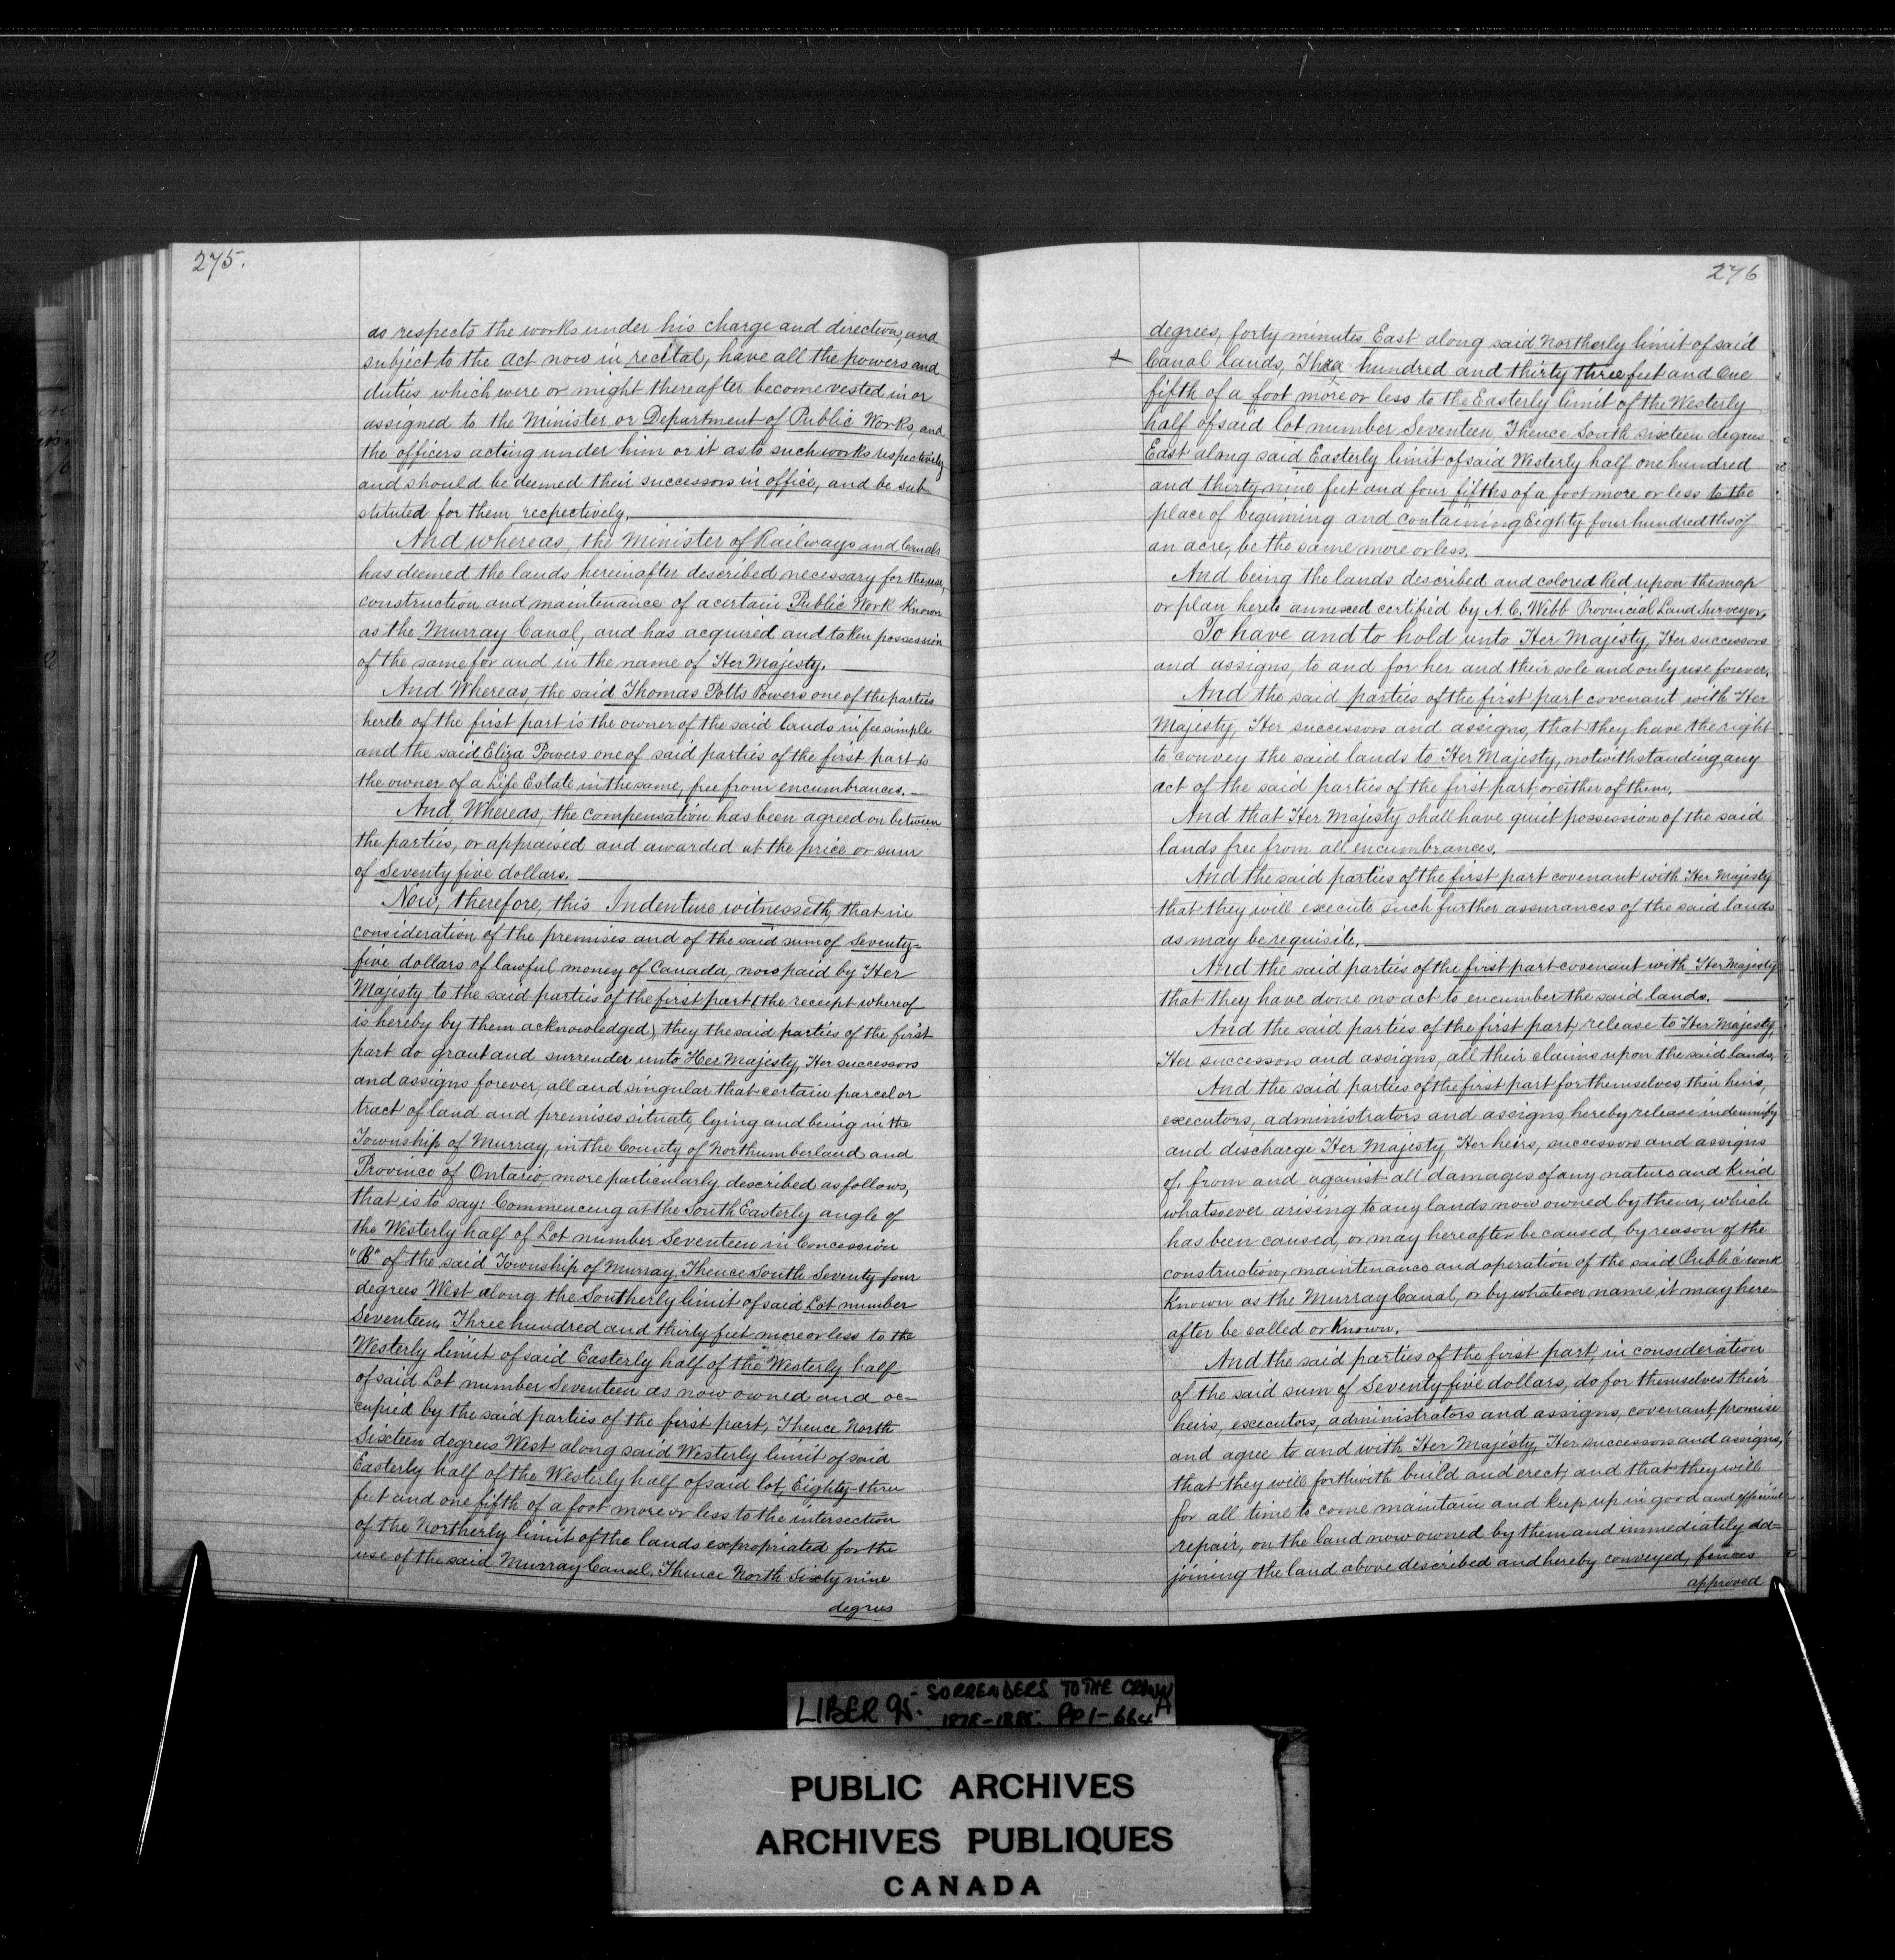 275.
as respects the works under his charge and direction, and
subject to the act now in recital, have all the powers and
duties which were or might thereafter become vested in or
assigned to the Minister or Department of Public Works, and
the officers acting under him or it as to such works respectively
and should be deemed their successors in office, and be sub-
stituted for them respectively.
And whereas, the Minister of Railways and Canals
has deemed the lands hereinafter described necessary for the use,
construction and maintenance of a certain Public Work Known
as the Murray Canal, and has acquired and taken possession
of the same for and in the name of Her Majesty.
And Whereas, the said Thomas Potts Powers one of the parties
hereto of the first part is the owner of the said lands in fee simple
and the said Eliza Powers one of said parties of the first part is
the owner of a Life Estate in the same, free from encumbrances.
And, Whereas, the compensation has been agreed on between
the parties, or appraised and awarded at the price or sum
of Seventy five dollars.
Now, therefore, this Indenture witnesseth, that in
consideration of the premises and of the said sum of Seventy=
five dollars of lawful money of Canada, now paid by Her
Majesty to the said parties of the first part (the receipt whereof
is hereby by them acknowledged), they the said parties of the first
part do grant and surrender unto Her Majesty, Her successors
and assigns forever, all and singular that certain parcel or
tract of land and premises situate, lying and being in the
Township of Murray, in the County of Northumberland and
Province of Ontario, more particularly described as follows,
that is to say: Commencing at the South Easterly angle of
the Westerly half of Lot number Seventeen in Concession
"B" of the said Township of Murray, Thence South Seventy four
degrees West along the Southerly limit of said Lot number
Seventeen, Three hundred and thirty feet more or less to the
Westerly limit of said Easterly half of the Westerly half
of said Lot number Seventeen as now owned and oc-
cupied by the said parties of the first part, Thence North
Sixteen degrees West along said Westerly limit of said
Easterly half of the Westerly half of said lot, Eighty three
feet and one fifth of a foot more or less to the intersection
of the Northerly limit of the lands expropriated for the
use of the said Murray Canal, Thence North Sixty nine
degrees
276
degrees, forty minutes East along said Northerly limit of said
Canal lands, hundred and thirty three feet and One
fifth of a foot more or less to the Easterly limit of the Westerly
half of said lot number Seventeen, Thence South sixteen degrees
East along said Easterly limit of said Westerly half one hundred
and thirty nine feet and four fifths of a foot more or less to the
place of beginning and containing Eighty four hundredths of
an acre, be the same more or less.
And being the lands described and colored Red upon the map
or plan hereto annexed certified by A. C. Webb Provincial Land Surveyor.
To have and to hold unto Her Majesty, Her successors
and assigns, to and for her and their sole and only use forever.
And the said parties of the first part covenant with Her
Majesty, Her successors and assigns, that they have the right
to convey the said lands to Her Majesty, notwithstanding any
act of the said parties of the first part, or either of them.
And that Her Majesty shall have quiet possession of the said
lands free from all encumbrances.
And the said parties of the first part covenant with Her Majesty
that they will execute such further assurances of the said lands
as may be requisite.
And the said parties of the first part covenant with Her Majesty
that they have done no act to encumber the said lands.
And the said parties of the first part, release to Her Majesty,
Her successors and assigns, all their claims upon the said lands,
And the said parties of the first part for themselves their heirs,
executors, administrators and assigns, hereby release indemnify
and discharge Her Majesty, Her heirs, successors and assigns
of, from and against all damages of any nature and Kind
whatsoever arising to any lands now owned by them, which
has been caused, or may hereafter be caused, by reason of the
construction, maintenance and operation of the said Public work
Known as the Murray Canal, or by whatever name, it may here-
after be called or Known.
And the said parties of the first part, in consideration
of the said sum of Seventy five dollars, do for themselves their
heirs, executors, administrators and assigns, covenant, promise
and agree to and with Her Majesty, Her successors and assigns,
that they will forthwith build and erect, and that they will
for all time to come maintain and keep up in good and efficient
repair, on the land now owned by them and immediately ad-
joining the land above described and hereby conveyed, fences
approved
LIBER 95. SORRENDERS TO THE CROWN
PP 1-664
PUBLIC ARCHIVES
ARCHIVES PUBLIQUES
CANADA